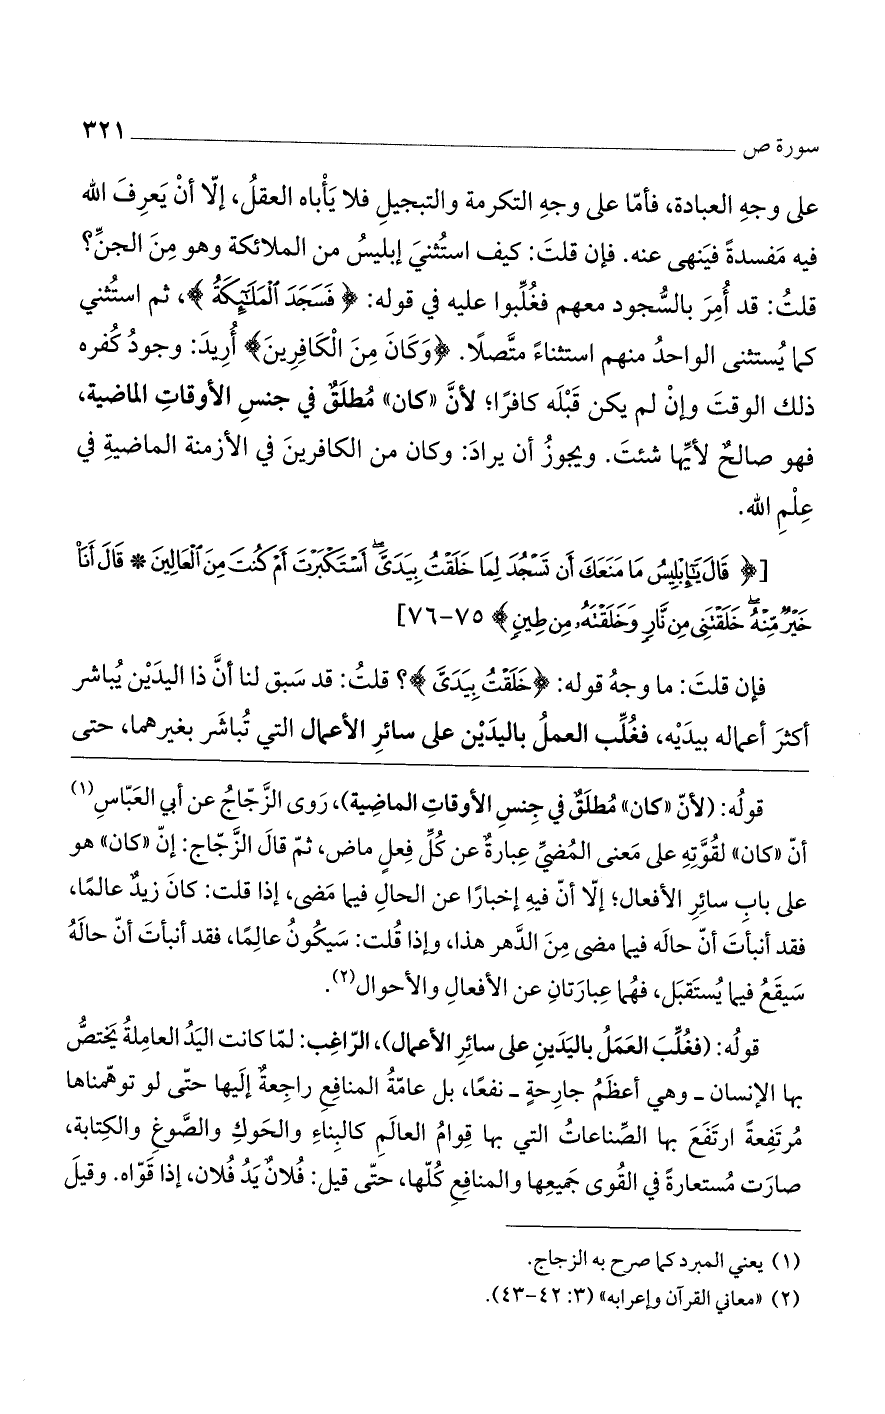 سورة ص ٣٢١
على وجهِ العبادة، فأمّا على وجهِ التكرمة والتبجيلِ فلا يَأْباه العقلُ، إلّا أنْ يَعرِفَ الله
فيه مَفسدةً فيَنهى عنه. فإن قلتَ: كيف استُثنيَ إبليسُ من الملائكة وهو مِنَ الجنِّ؟
قلتُ: قد أُمِرَ بالسُّجود معهم فغُلِّبوا عليه في قوله: ﴿فَسَجَدَ ٱلْمَلَٰٓئِكَةُ﴾، ثم استُثني
كما يُستثنى الواحدُ منهم استثناءً متَّصلًا. ﴿وَكَانَ مِنَ الْكَافِرِينَ﴾ أُريدَ: وجودُ كُفره
ذلك الوقتَ وإنْ لم يكن قَبْلَه كافرًا؛ لأنَّ «كان» مُطلَقٌ في جنسِ الأوقاتِ الماضية،
فهو صالحٌ لأيِّها شئتَ. ويجوزُ أن يرادَ: وكان من الكافرينَ في الأزمنة الماضيةِ في
عِلْمِ الله.
[﴿قَالَ يَٰٓإِبْلِيسُ مَا مَنَعَكَ أَن تَسْجُدَ لِمَا خَلَقْتُ بِيَدَىَّ ۖ أَسْتَكْبَرْتَ أَمْ كُنتَ مِنَ ٱلْعَالِينَ * قَالَ أَنَا۠
خَيْرٌ مِّنْهُ ۖ خَلَقْتَنِى مِن نَّارٍ وَخَلَقْتَهُۥ مِن طِينٍ﴾ ٧٥-٧٦]
فإن قلتَ: ما وجهُ قوله: ﴿خَلَقْتُ بِيَدَىَّ﴾؟ قلتُ: قد سَبق لنا أنَّ ذا اليدَيْن يُباشر
أكثرَ أعماله بيدَيْه، فغُلِّب العملُ باليدَيْن على سائرِ الأعمال التي تُباشَر بغيرهما، حتى
قولُه: (لأنّ «كان» مُطلَقٌ في جِنسِ الأوقاتِ الماضِية)، رَوى الزَّجّاجُ عن أبي العَبّاسِ(١)
أنّ «كان» لقُوَّتِهِ على مَعنى المُضيِّ عِبارةٌ عن كُلِّ فِعلٍ ماض، ثمّ قالَ الزَّجّاج: إنّ «كان» هو
على بابِ سائرِ الأفعال؛ إلّا أنّ فيهِ إخبارًا عن الحالِ فيما مَضى، إذا قلت: كانَ زيدٌ عالمًا،
فقد أنبأتَ أنّ حالَه فيما مضى مِنَ الدَّهر هذا، وإذا قُلت: سَيكُونُ عالِمًا، فقد أنبأتَ أنّ حالَهُ
سَيقَعُ فيما يُستَقبَل، فهُما عِبارَتانِ عن الأفعالِ والأحوال(٢).
قولُه: (فغُلِّبَ العَمَلُ باليَدَينِ على سائرِ الأعمال)، الرّاغِب: لمّا كانت اليَدُ العامِلةُ يَختصُّ
بها الإنسان ـ وهي أعظَمُ جارِحةٍ ـ نفعًا، بل عامّةُ المنافعِ راجعةٌ إلَيها حتّى لو توهّمناها
مُرتَفِعةً ارتَفَعَ بها الصِّناعاتُ التي بها قِوامُ العالَمِ كالبِناءِ والحَوكِ والصَّوغِ والكِتابة،
صارَت مُستعارةً في القُوى جَميعِها والمنافعِ كُلّها، حتّى قيل: فُلانٌ يَدُ فُلان، إذا قَوّاه. وقيلَ
(١) يعني المبرد كما صرح به الزجاج.
(٢) «معاني القرآن وإعرابه» (٣: ٤٢-٤٣).